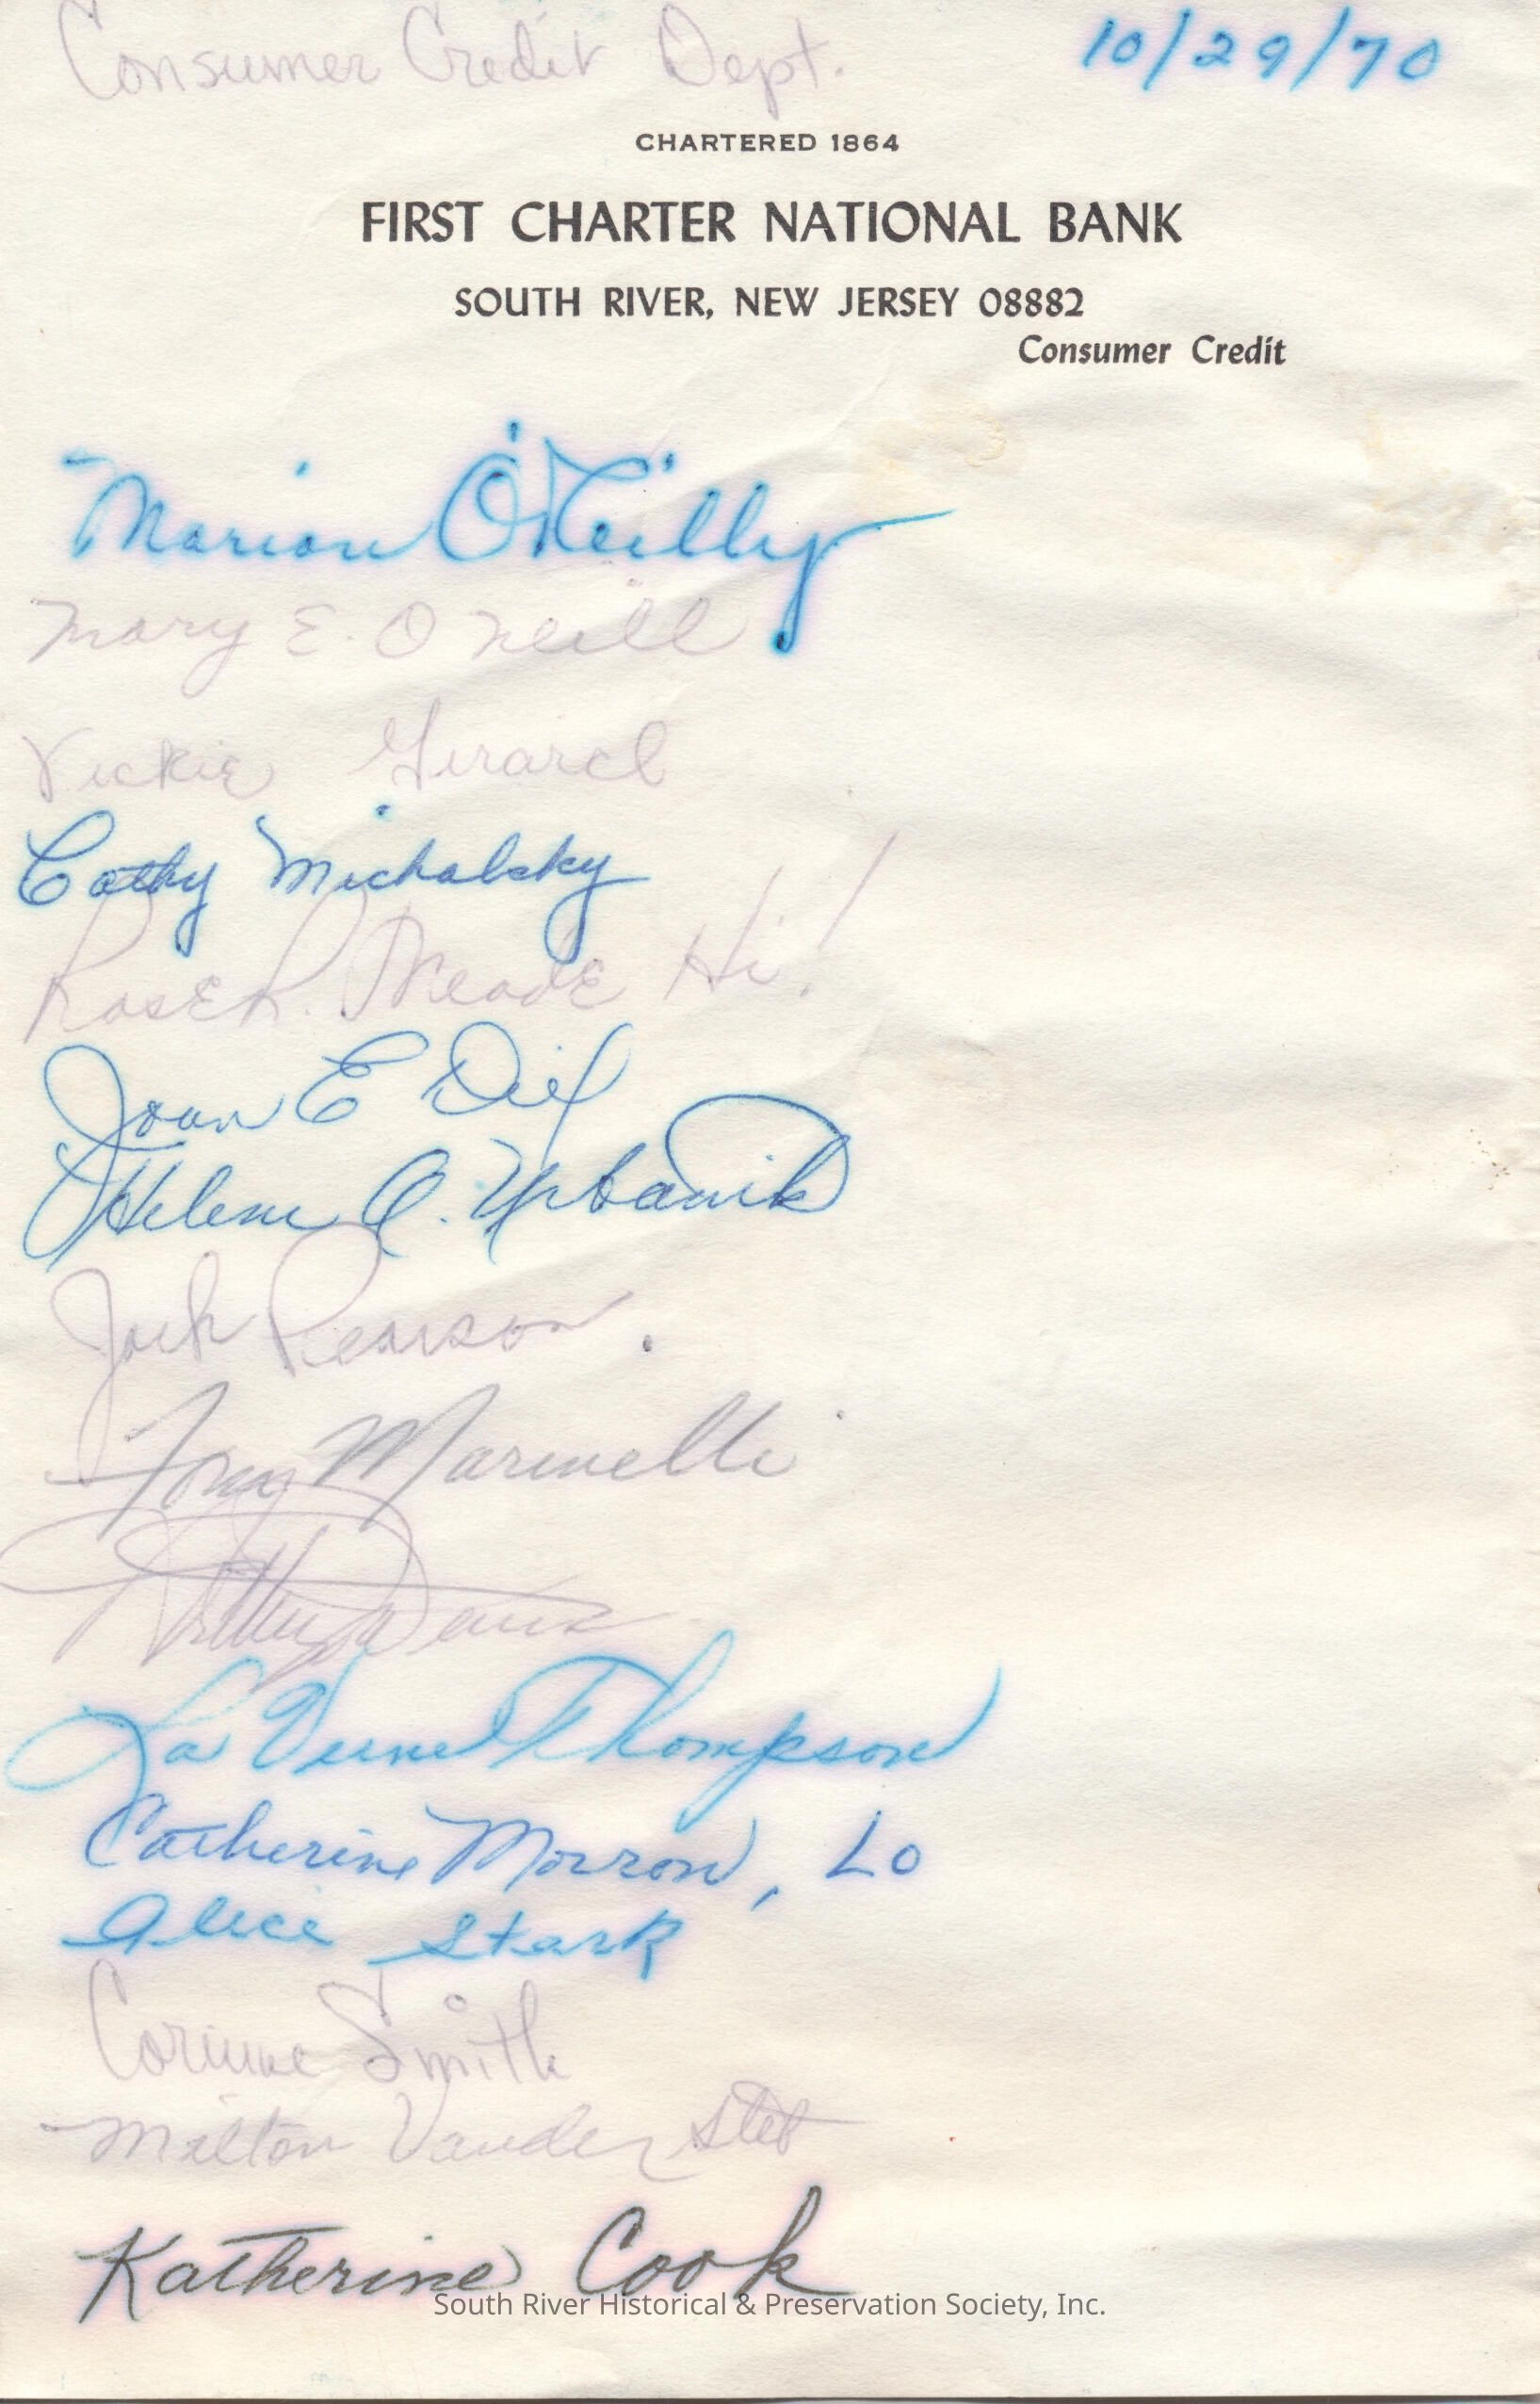 Consumer Credit Dept. 10/29/70
CHARTERED 1864
FIRST CHARTER NATIONAL BANK
SOUTH RIVER, NEW JERSEY 08882
Consumer Credit
Marion O'Reilly
Mary E. O'Neill
Vickie Girard
Cathy Michalsky
Rose R. Meade Hi!
Joan E Dil
Helene O. Urbanik
Jack Pearson.
Tom Marinelli
Davis
La Verne Thompson
Catherine Morrow, LO
Alice Stark
Corinne Smith
Milton Vander Slet
Katherine Cook
South River Historical & Preservation Society, Inc.